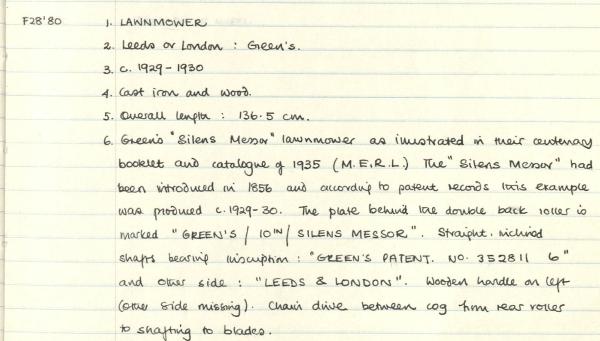 F28'80 1. LAWNMOWER
2. Leeds or London : Green's.
3. c. 1929-1930
4. Cast iron and wood.
5. Overall length : 136.5 cm.
6. Green's "Silens Messor" lawnmower as illustrated in their centenary
booklet and catalogue of 1935 (M.E.R.L.) The "Silens Messor" had
been introduced in 1856 and according to patent records this example
was produced c.1929-30. The plate behind the double back roller is
marked "GREEN'S / 10IN / SILENS MESSOR". Straight, inclined
shafts bearing inscription : "GREEN'S PATENT. NO. 352811 6"
and other side : "LEEDS & LONDON". Wooden handle on left
(other side missing). Chain drive between cog from rear roller
to shafting to blades.